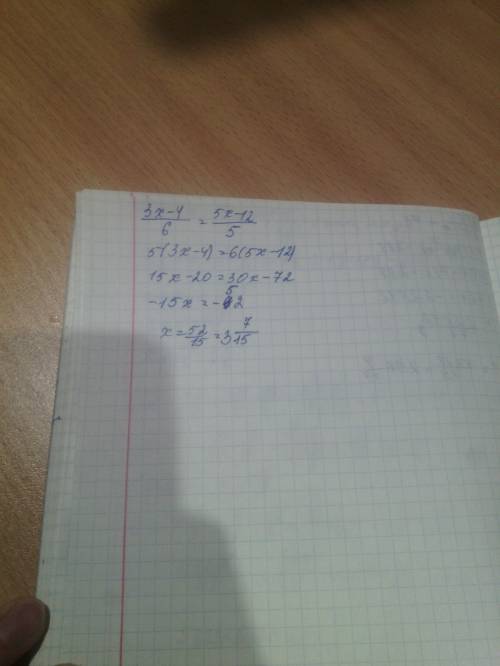 (3x-4)/6 = (5x-12)/5
5(3x-4)=6(5x-12)
15x-20=30x-72
-15x=-52
x=52/15=3 7/15